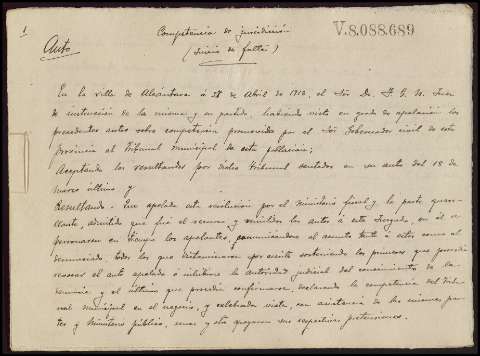 1
Competencia de jurisdicción
V.8.088.689
Auto
(Juicio de faltas)
En la villa de Alcántara á 28 de Abril de 1912, el Sr. D. F. G. N. Juez
de instrucción de la misma y su partido, habiendo visto en grado de apelación los
precedentes autos sobre competencia promovida por el Sr. Gobernador civil de esta
provincia al Tribunal Municipal de esta población;
Aceptando los resultandos por dicho Tribunal sentados en su auto del 18 de
marzo último y
Resultando. Que apelada esta resolución por el Ministerio fiscal y la parte quere-
llante, admitido que fué el recurso y remitidos los autos á este Juzgado, en él se
personaron en tiempo los apelantes, comunicándose el asunto tanto á estos como al
denunciado, todos los que dictaminaron por escrito sosteniendo los primeros que procedía
revocar el auto apelado é inhibirse la autoridad judicial del conocimiento de la
denuncia y el último que procedía confirmarse, declarando la competencia del Tribu-
nal municipal en el negocio, y celebrada vista, con asistencia de las mismas par-
tes y Ministerio público, unas y otro apoyaron sus respectivas pretensiones.